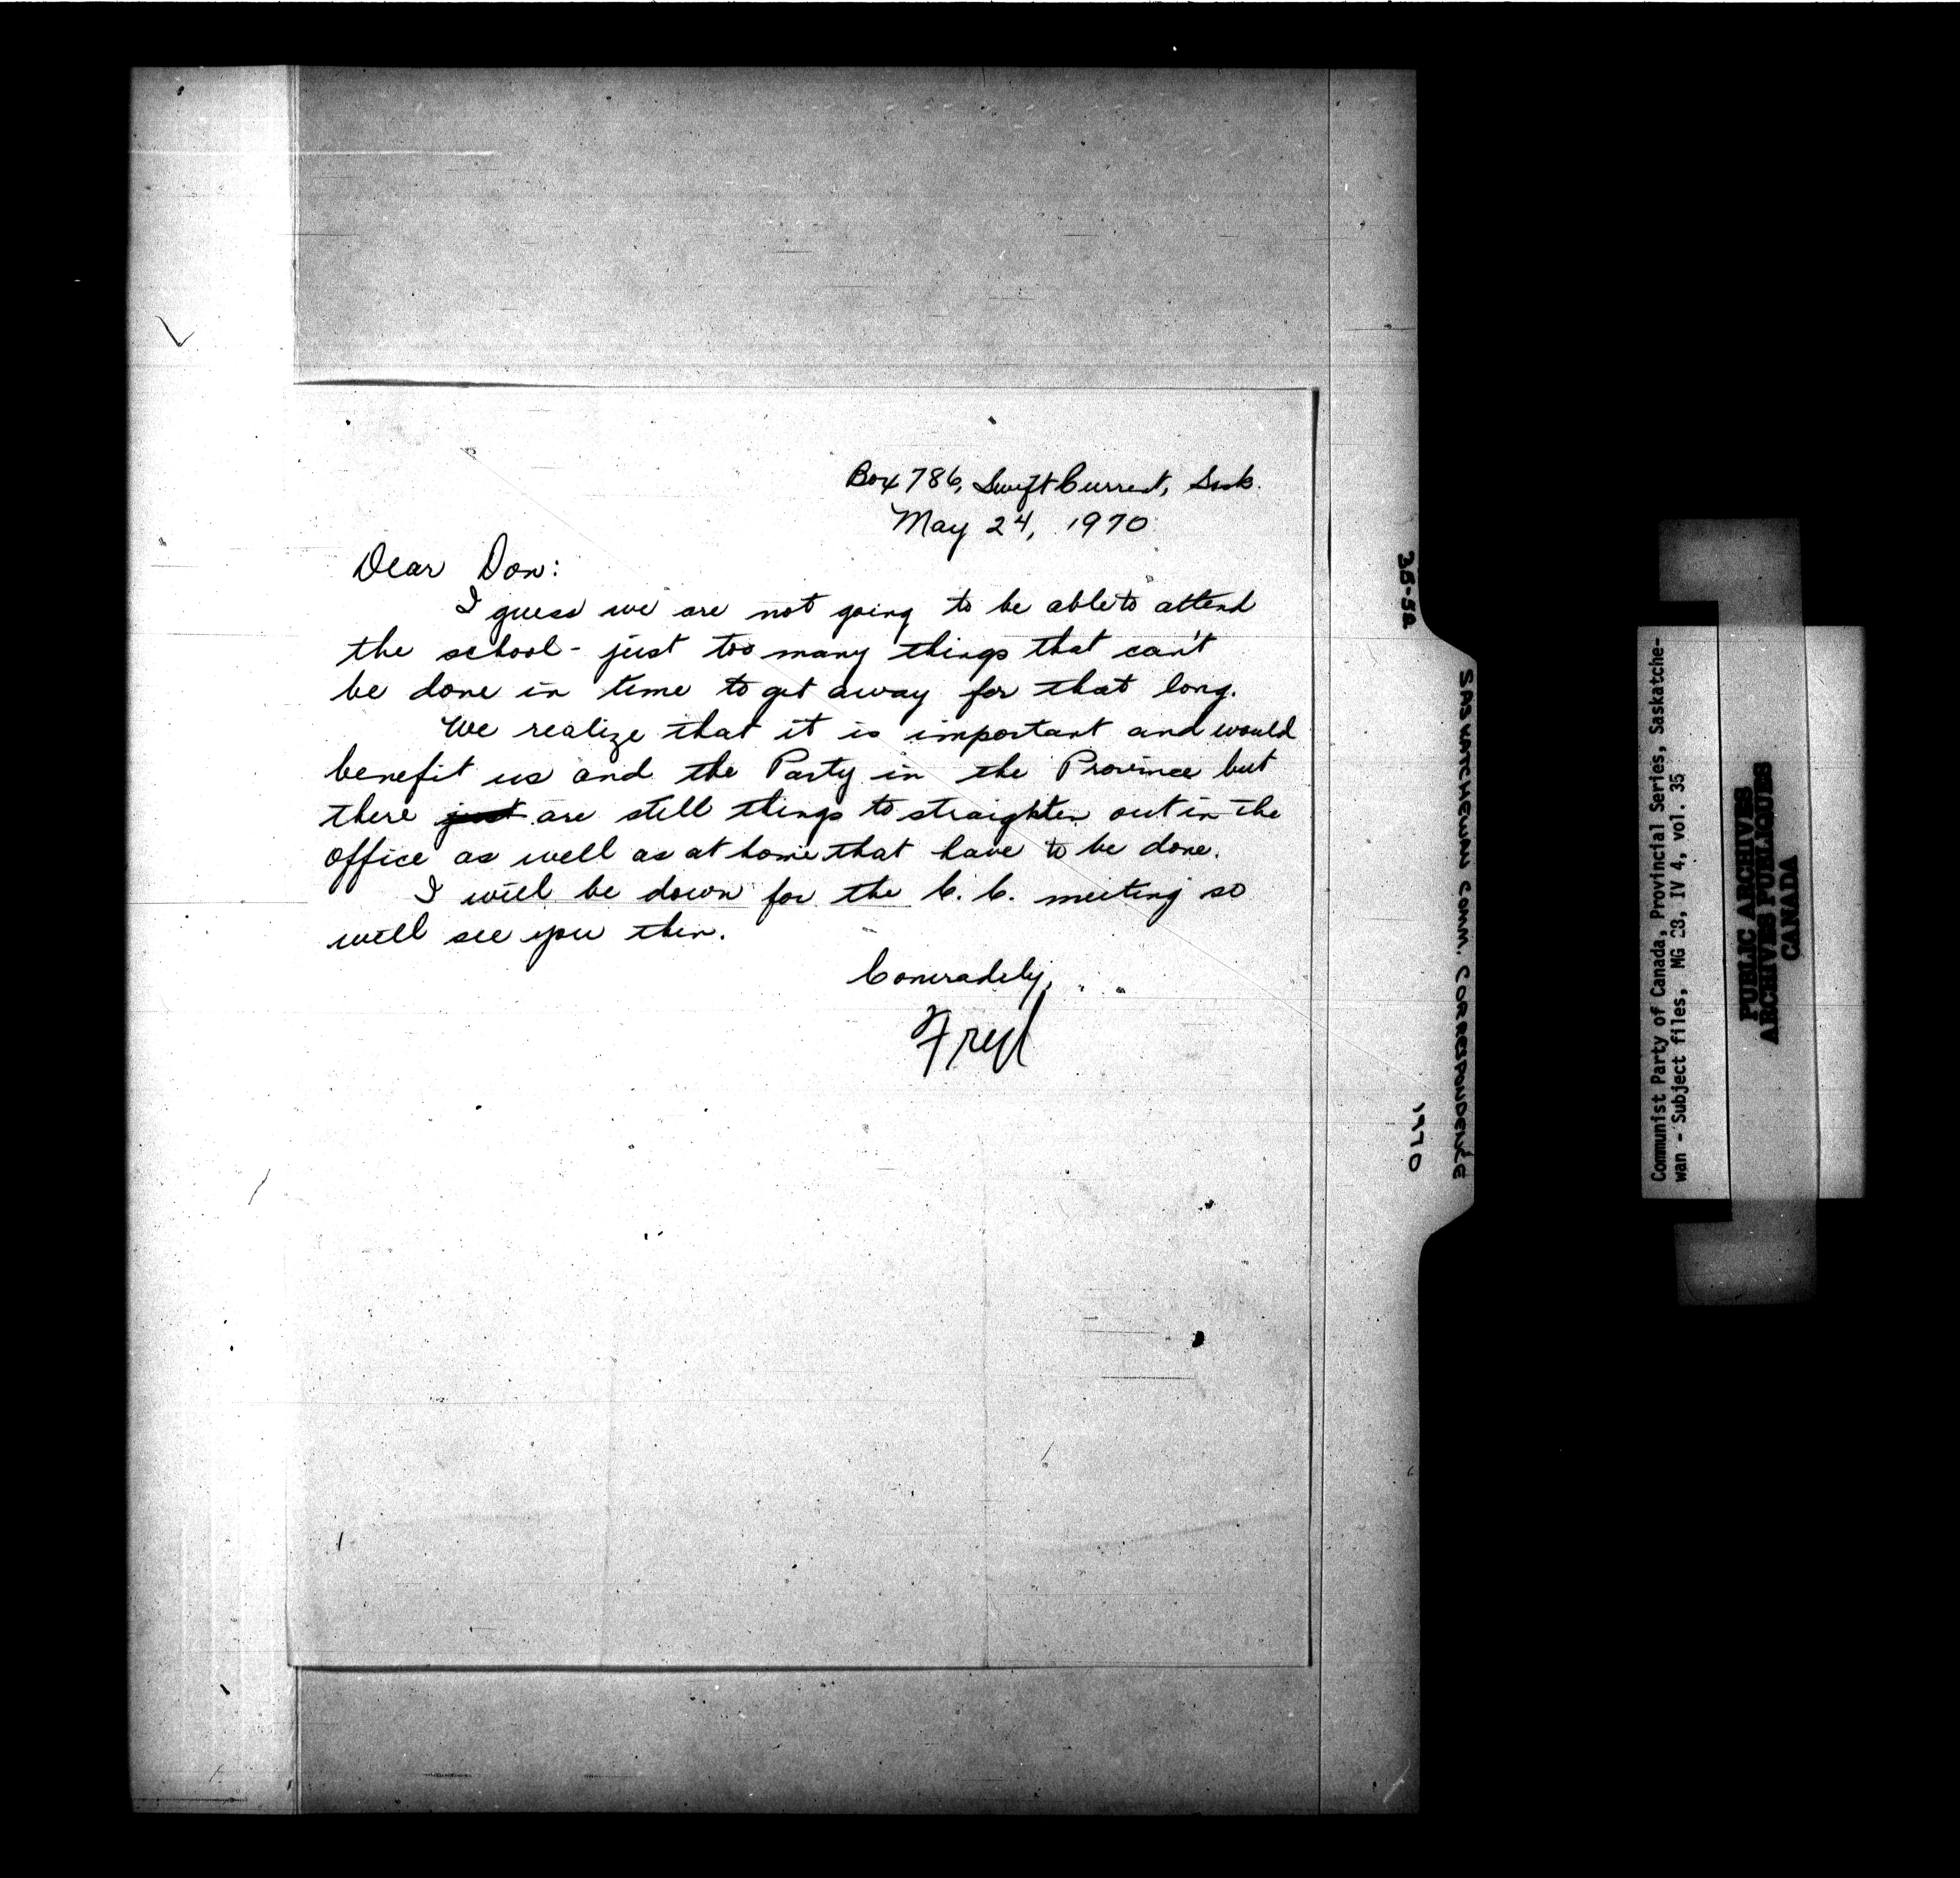 Box 786, Swift Current, Sask.
May 24, 1970
Dear Don:
I guess we are not going to be able to attend
the school - just too many things that can't
be done in time to get away for that long.
We realize that it is important and would
benefit us and the Party in the Province but
there just are still things to straighten out in the
office as well as at home that have to be done.
I will be down for the C. C. meeting so
will see you then.
Comradely,
Fred
35-52
SASKATCHEWAN COMM. CORRESPONDENCE
1970
Communist Party of Canada, Provincial Series, Saskatche-
wan - Subject files, MG 28, IV 4, vol. 35
PUBLIC ARCHIVES
ARCHIVES PUBLIQUES
CANADA